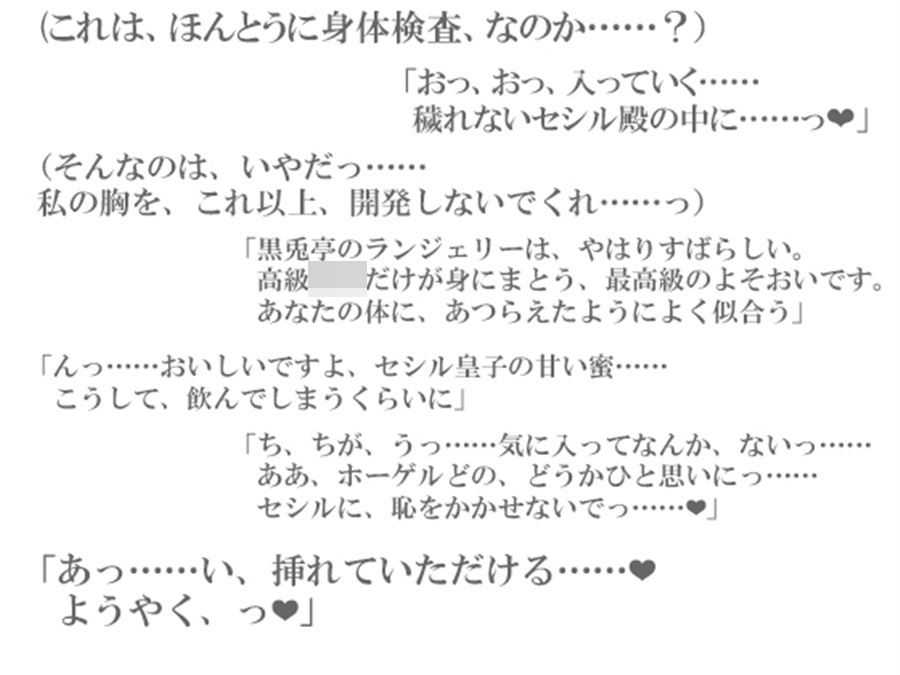 (これは、ほんとうに身体検査、なのか……？)
「おっ、おっ、入っていく……
穢れないセシル殿の中に……っ❤」
(そんなのは、いやだっ……
私の胸を、これ以上、開発しないでくれ……っ)
「黒兎亭のランジェリーは、やはりすばらしい。
高級だけが身にまとう、最高級のよそおいです。
あなたの体に、あつらえたようによく似合う」
「んっ……おいしいですよ、セシル皇子の甘い蜜……
こうして、飲んでしまうくらいに」
「ち、ちが、うっ……気に入ってなんか、ないっ……
ああ、ホーゲルどの、どうかひと思いにっ……
セシルに、恥をかかせないでっ……❤」
「あっ……い、挿れていただける……❤
ようやく、っ❤」